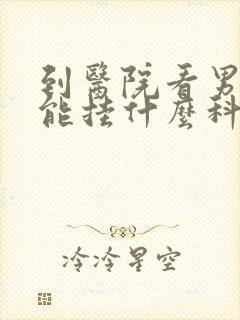 到醫院看男
能挂什麼科
冷冷星空